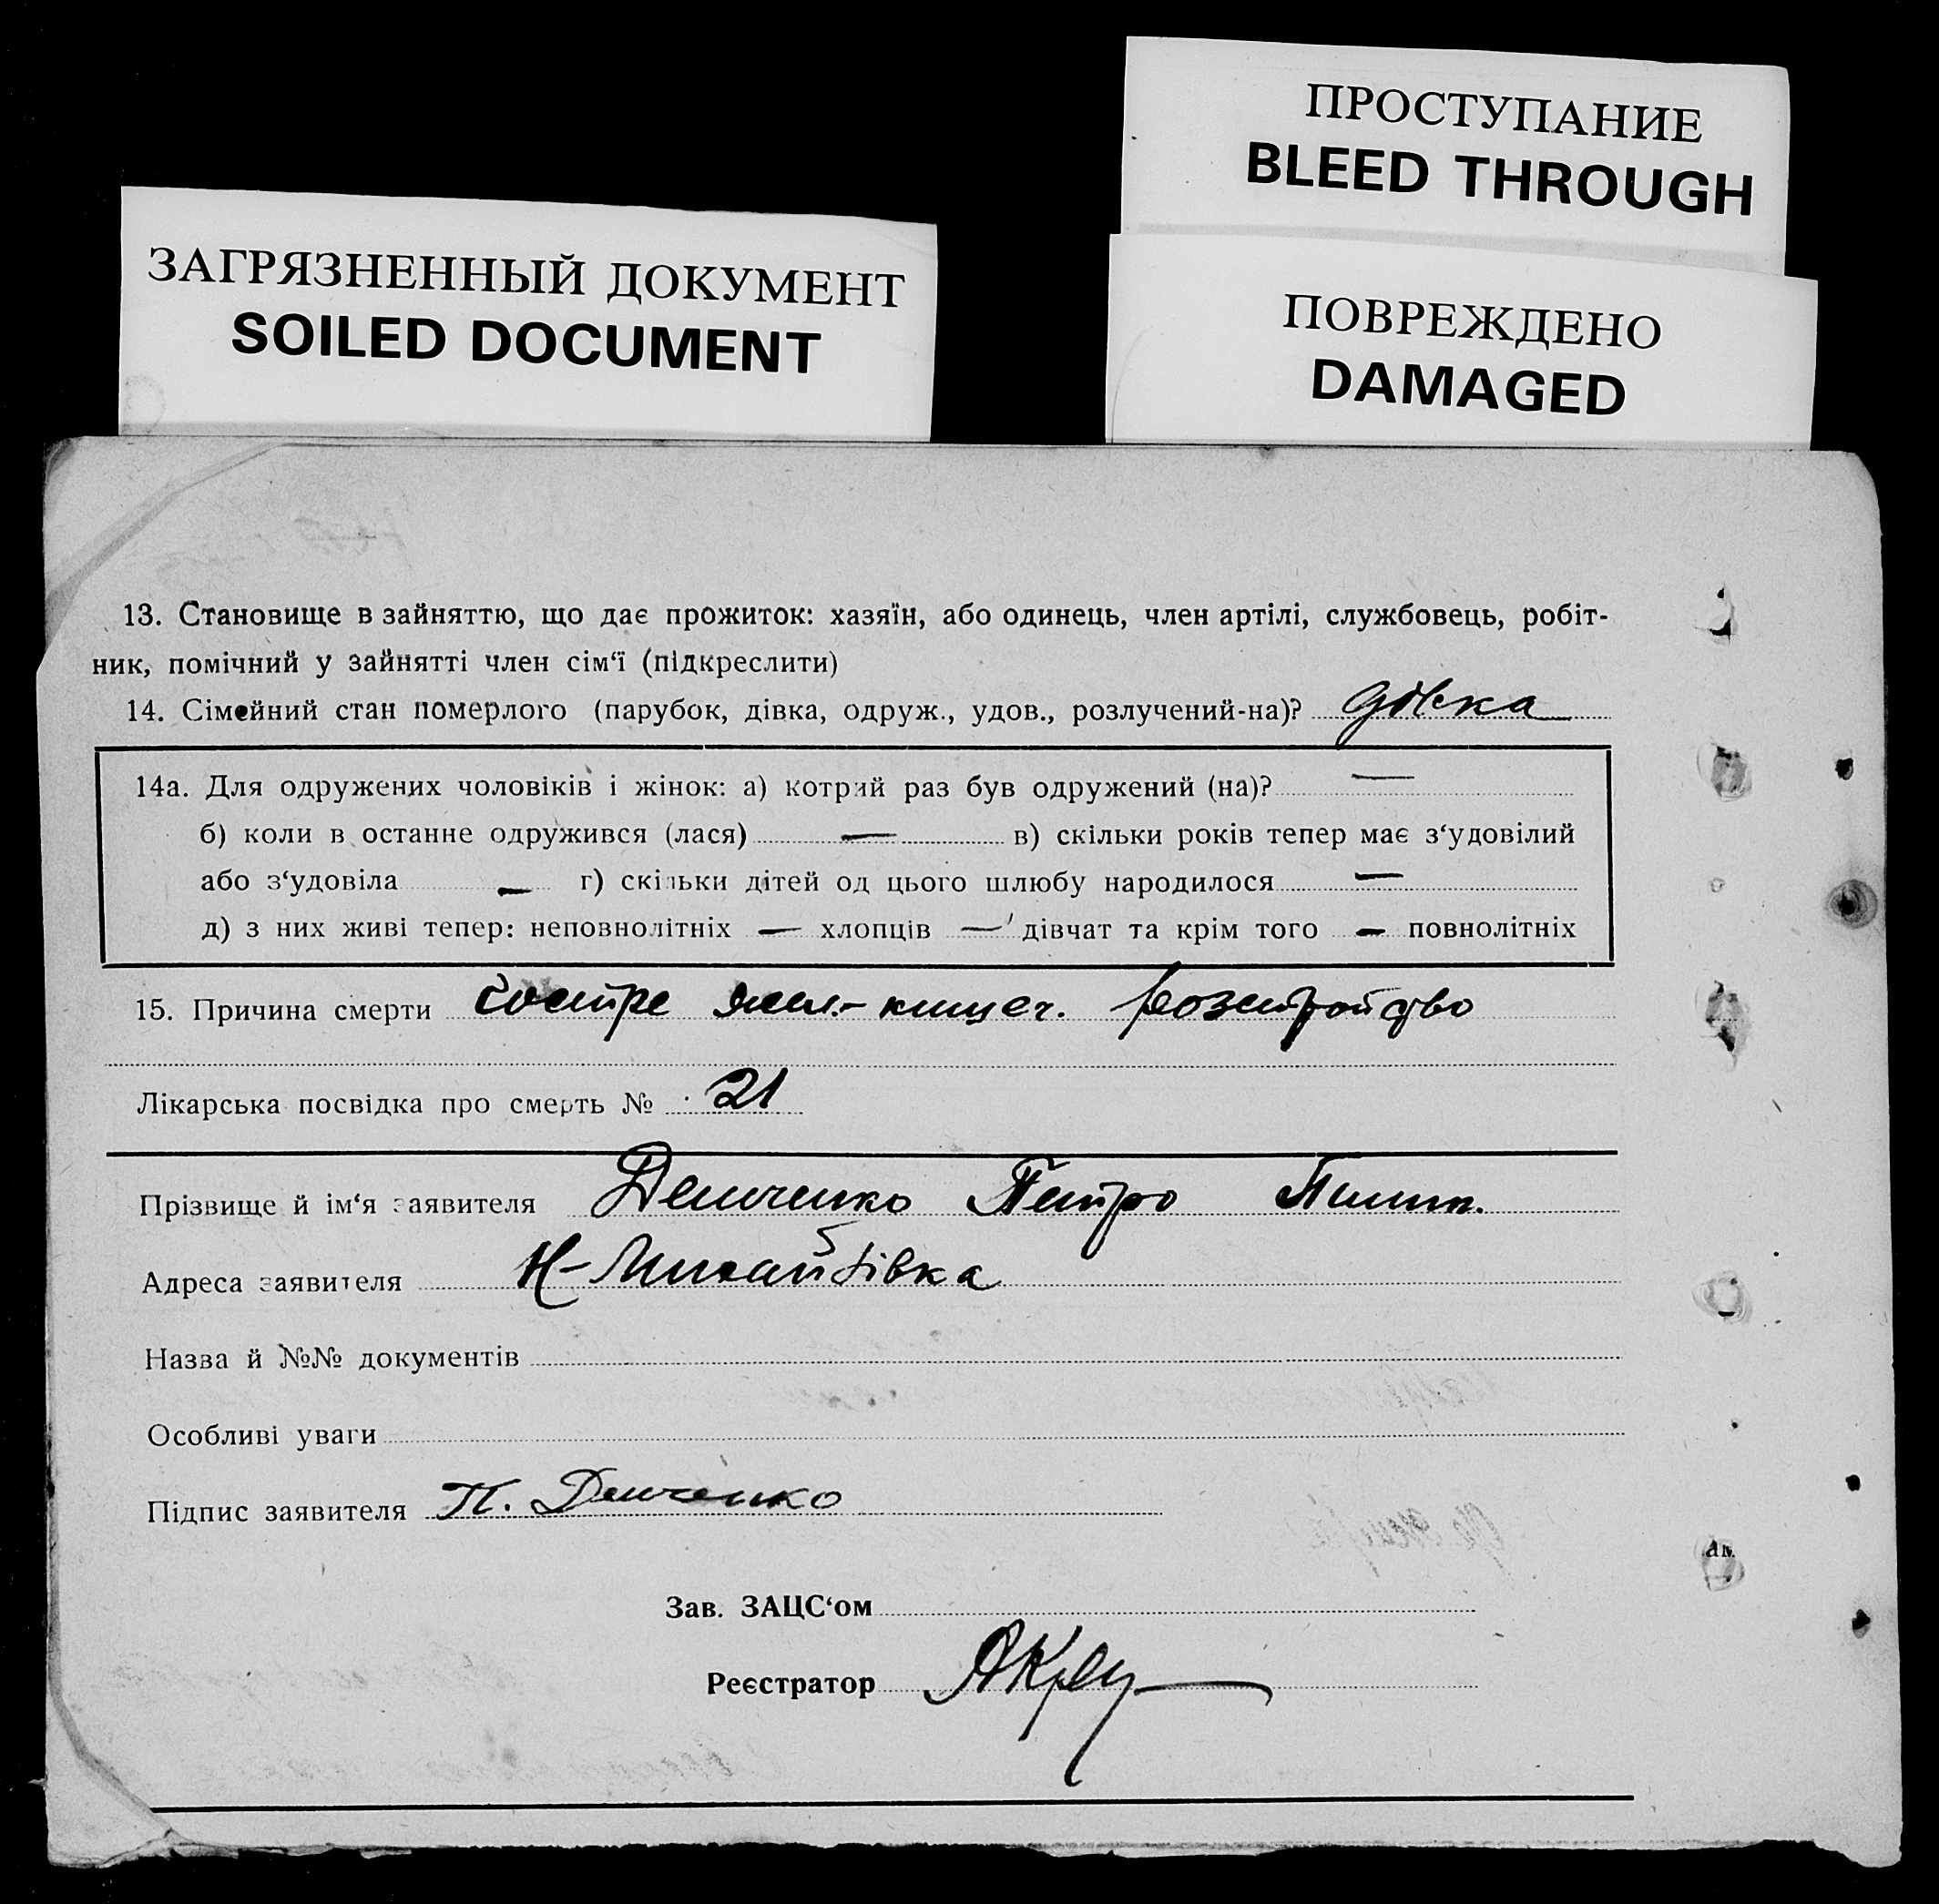 ПРОСТУПАНИЕ
BLEED THROUGH
ЗАГРЯЗНЕННЫЙ ДОКУМЕНТ
SOILED DOCUMENT
ПОВРЕЖДЕНО
DAMAGED
13. Становище в зайняттю, що дає прожиток: хазяїн, або одинець, член артілі, службовець, робіт-
ник, помічний у зайнятті член сім‘ї (підкреслити)
14. Сімейний стан померлого (парубок, дівка, одруж., удов., розлучений-на)? дівка
14а. Для одружених чоловіків і жінок: а) котрий раз був одружений (на)? —
б) коли в останнє одружився (лася) — в) скільки років тепер має з‘удовілий
або з‘удовіла — г) скільки дітей од цього шлюбу народилося —
д) з них живі тепер: неповнолітніх — хлопців — дівчат та крім того — повнолітніх
15. Причина смерти гостре жел.-кишеч. розстройство
Лікарська посвідка про смерть № 21
Прізвище й ім‘я заявителя Демченко Петро
Адреса заявителя Н-Михайлівка
Назва й №№ документів
Особливі уваги
Підпис заявителя П. Демченко
Зав. ЗАЦС‘ом
Реєстратор